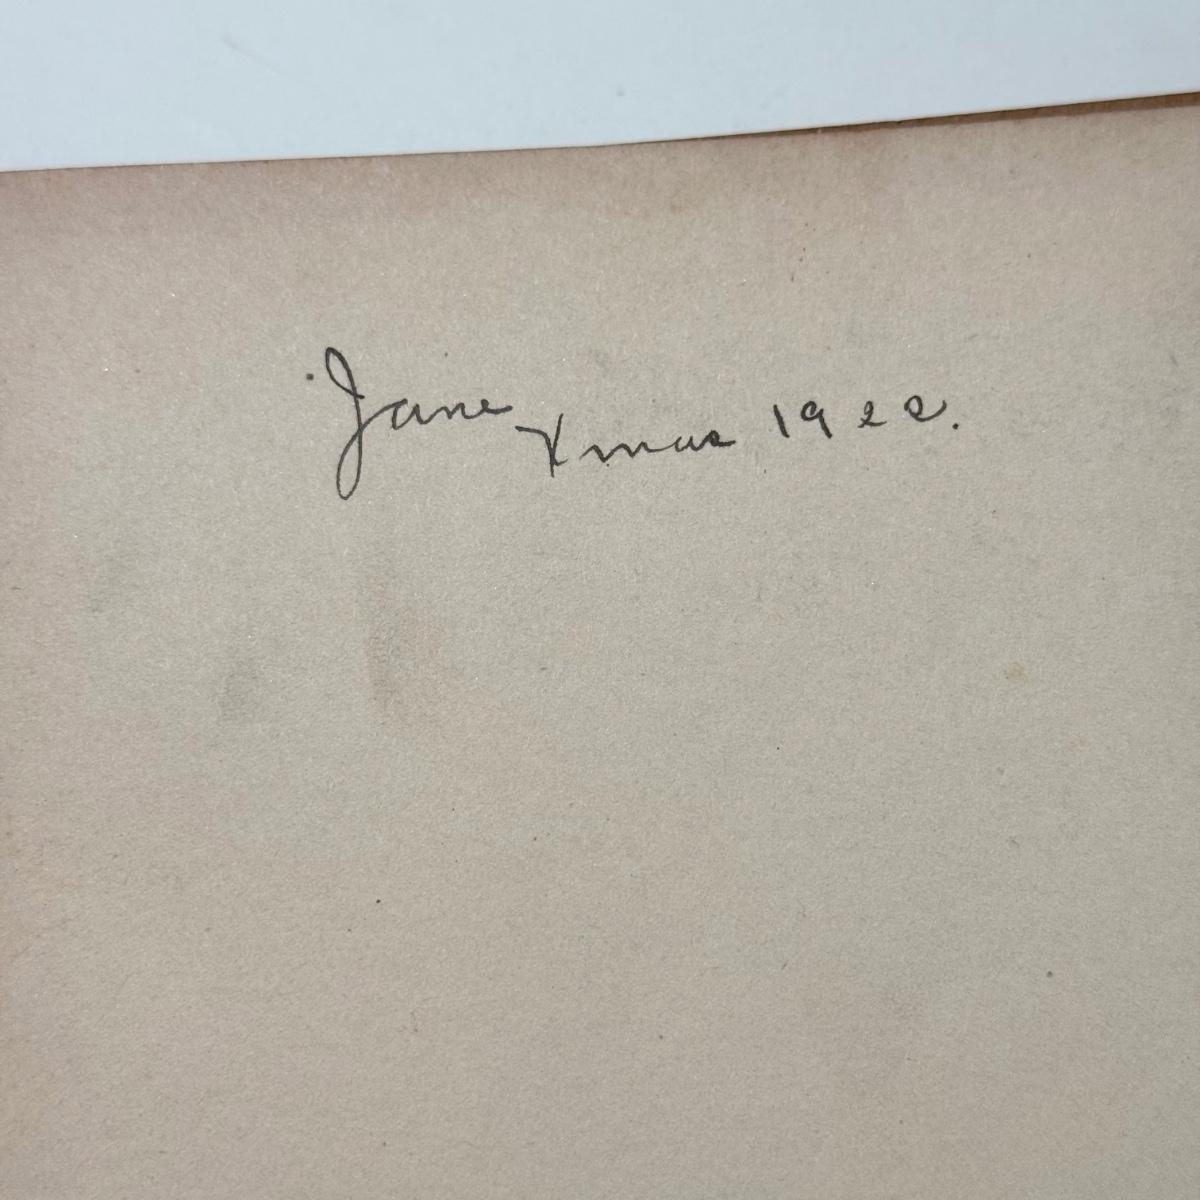 Jane
Xmas 1922.